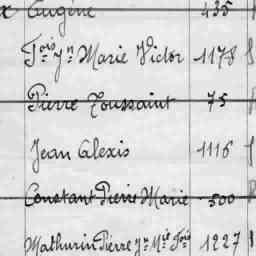 Eugène 435
Fçois Jn Marie Victor 1178
Pierre Toussaint 75
Jean Alexis 1116
Constant Pierre Marie 500
Mathurin Pierre Jn Mie Fçois 1227